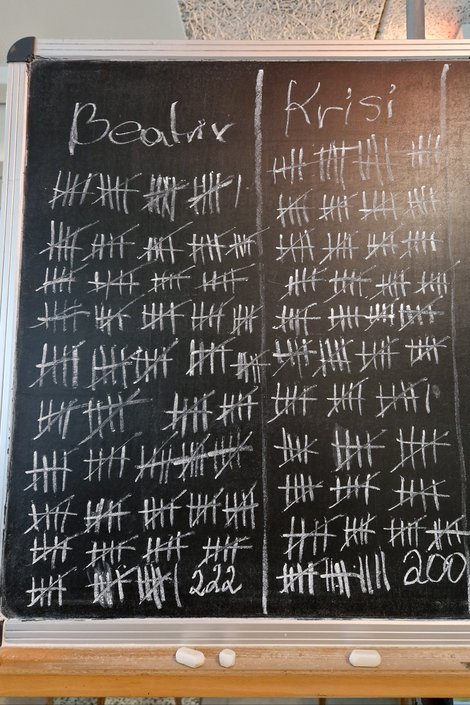 Beatrix
Krisi
222
200